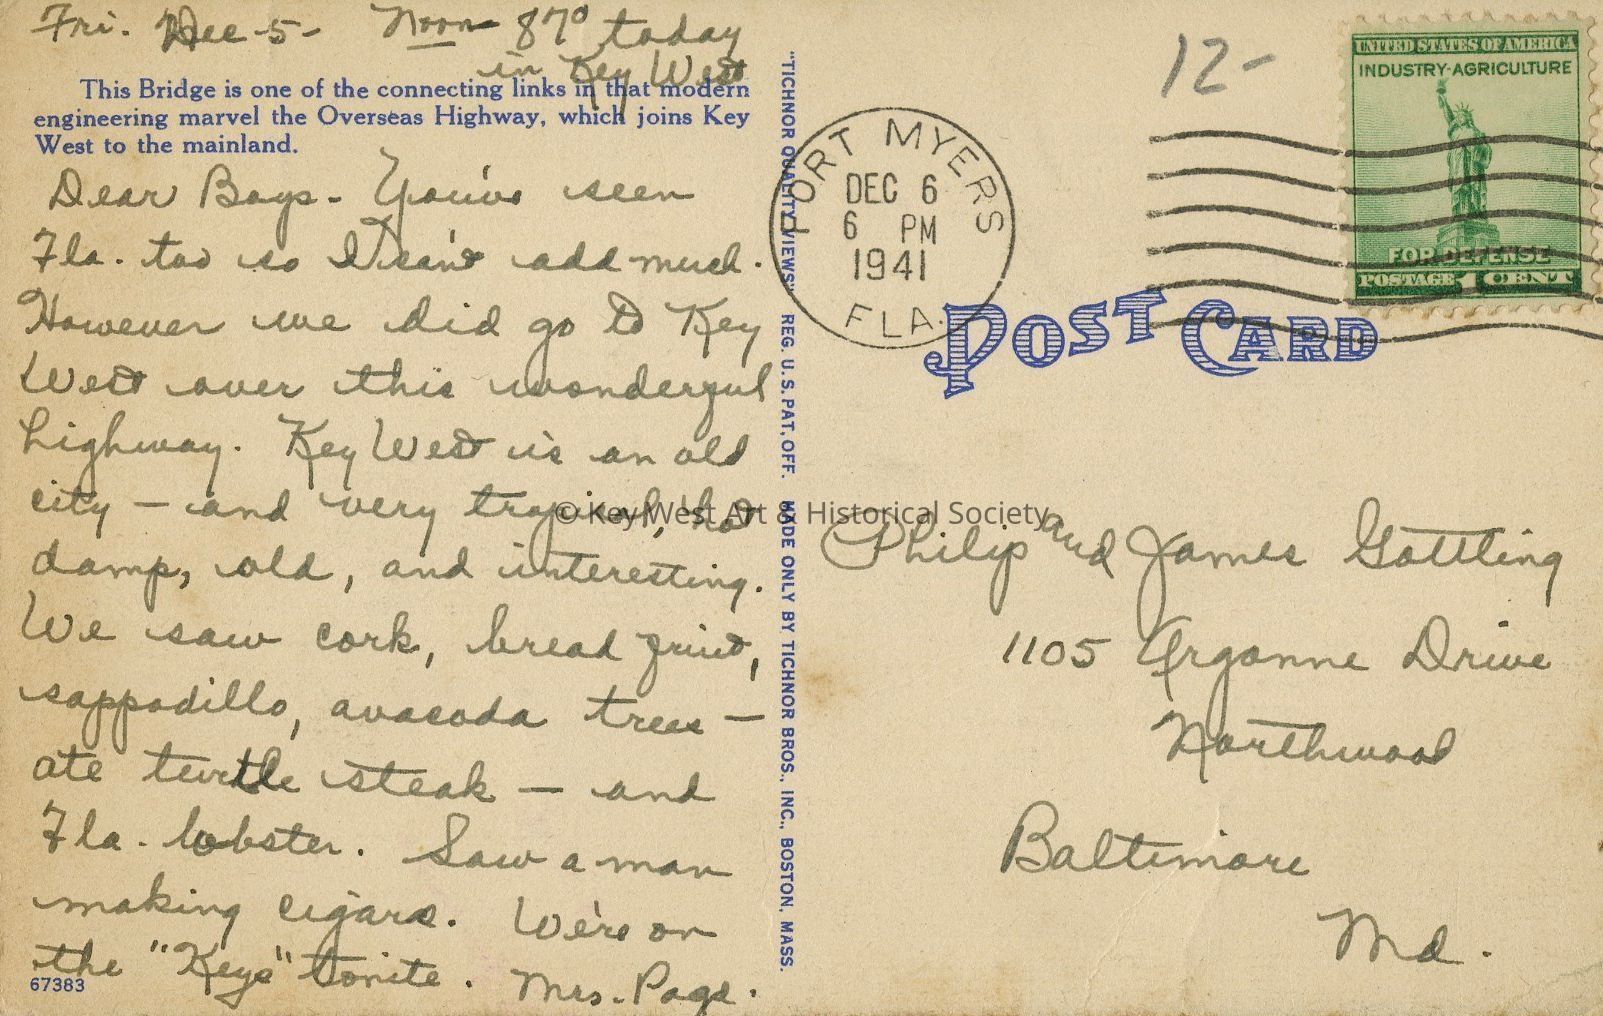 Fri. Dec-5- Noon- 87° today
in Key West
This Bridge is one of the connecting links in that modern
engineering marvel the Overseas Highway, which joins Key
West to the mainland.
Dear Boys- You've seen
Fla. too so I can't add much.
However we did go to Key
West over this wonderful
highway. Key West is an old
city - and very tropical, hot
damp, old, and interesting.
We saw cork, bread fruit,
sappadillo, avacoda trees -
ate turtle steak - and
Fla. lobster. Saw a man
making cigars. We're on
the "Keys" tonite. Mrs. Page.
67383
"TICHNOR QUALITY VIEWS" REG. U.S. PAT. OFF. MADE ONLY BY TICHNOR BROS., INC., BOSTON, MASS.
12-
UNITED STATES OF AMERICA
INDUSTRY-AGRICULTURE
FOR DEFENSE
POSTAGE 1 CENT
FORT MYERS
DEC 6
6 PM
1941
FLA.
POST CARD
© Key West Art & Historical Society
Philip and James Gottling
1105 Argonne Drive
Northwood
Baltimore
Md.